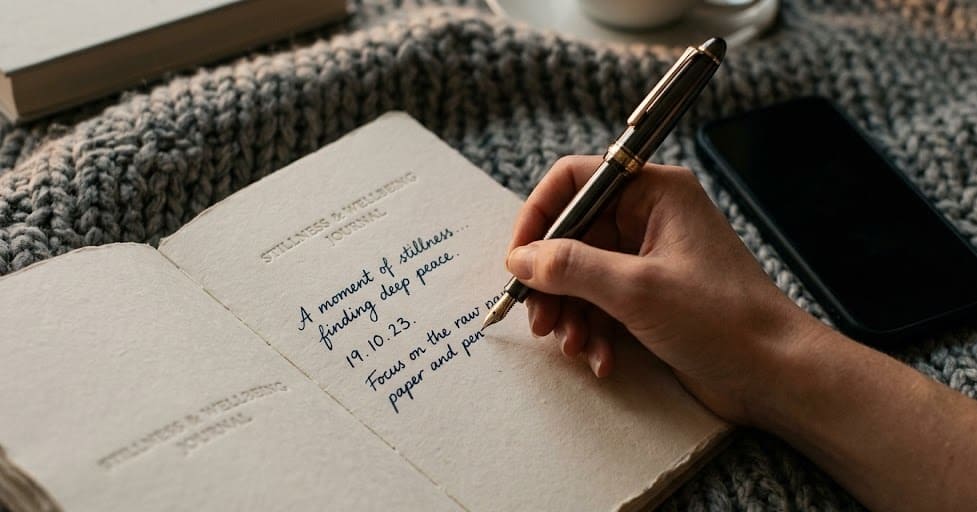 STILLNESS & WELLBEING
JOURNAL
STILLNESS & WELLBEING
JOURNAL
A moment of stillness...
finding deep peace.
19.10.23.
Focus on the raw
paper and pen